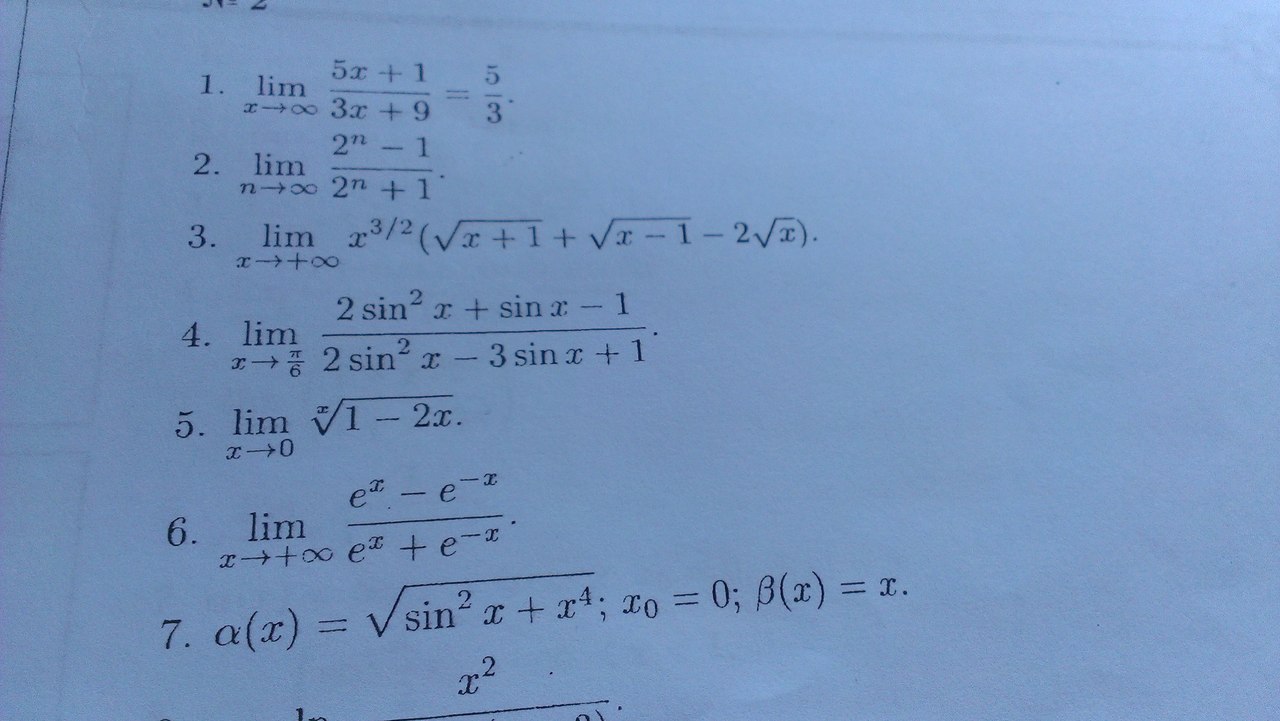 № 2
1. lim x→∞ (5x + 1)/(3x + 9) = 5/3.
2. lim n→∞ (2ⁿ − 1)/(2ⁿ + 1).
3. lim x→+∞ x^{3/2}(√(x + 1) + √(x − 1) − 2√x).
4. lim x→π/6 (2 sin² x + sin x − 1)/(2 sin² x − 3 sin x + 1).
5. lim x→0 ˣ√(1 − 2x).
6. lim x→+∞ (eˣ − e⁻ˣ)/(eˣ + e⁻ˣ).
7. α(x) = √(sin² x + x⁴); x₀ = 0; β(x) = x.
x²